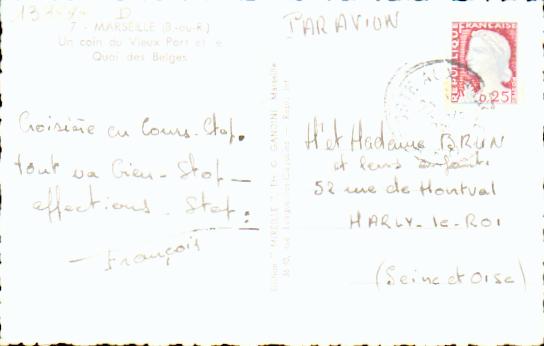 7 - MARSEILLE (B.-du-R.)
Un coin du Vieux Port et le
Quai des Belges
PAR AVION
REPUBLIQUE FRANÇAISE
0,25
Croisière en Cours. Stop.
tout va bien - Stop -
affections. Stop.
François
Mr et Madame BRUN
et leurs enfants
52 rue de Montval
MARLY-le-ROI
(Seine et Oise)